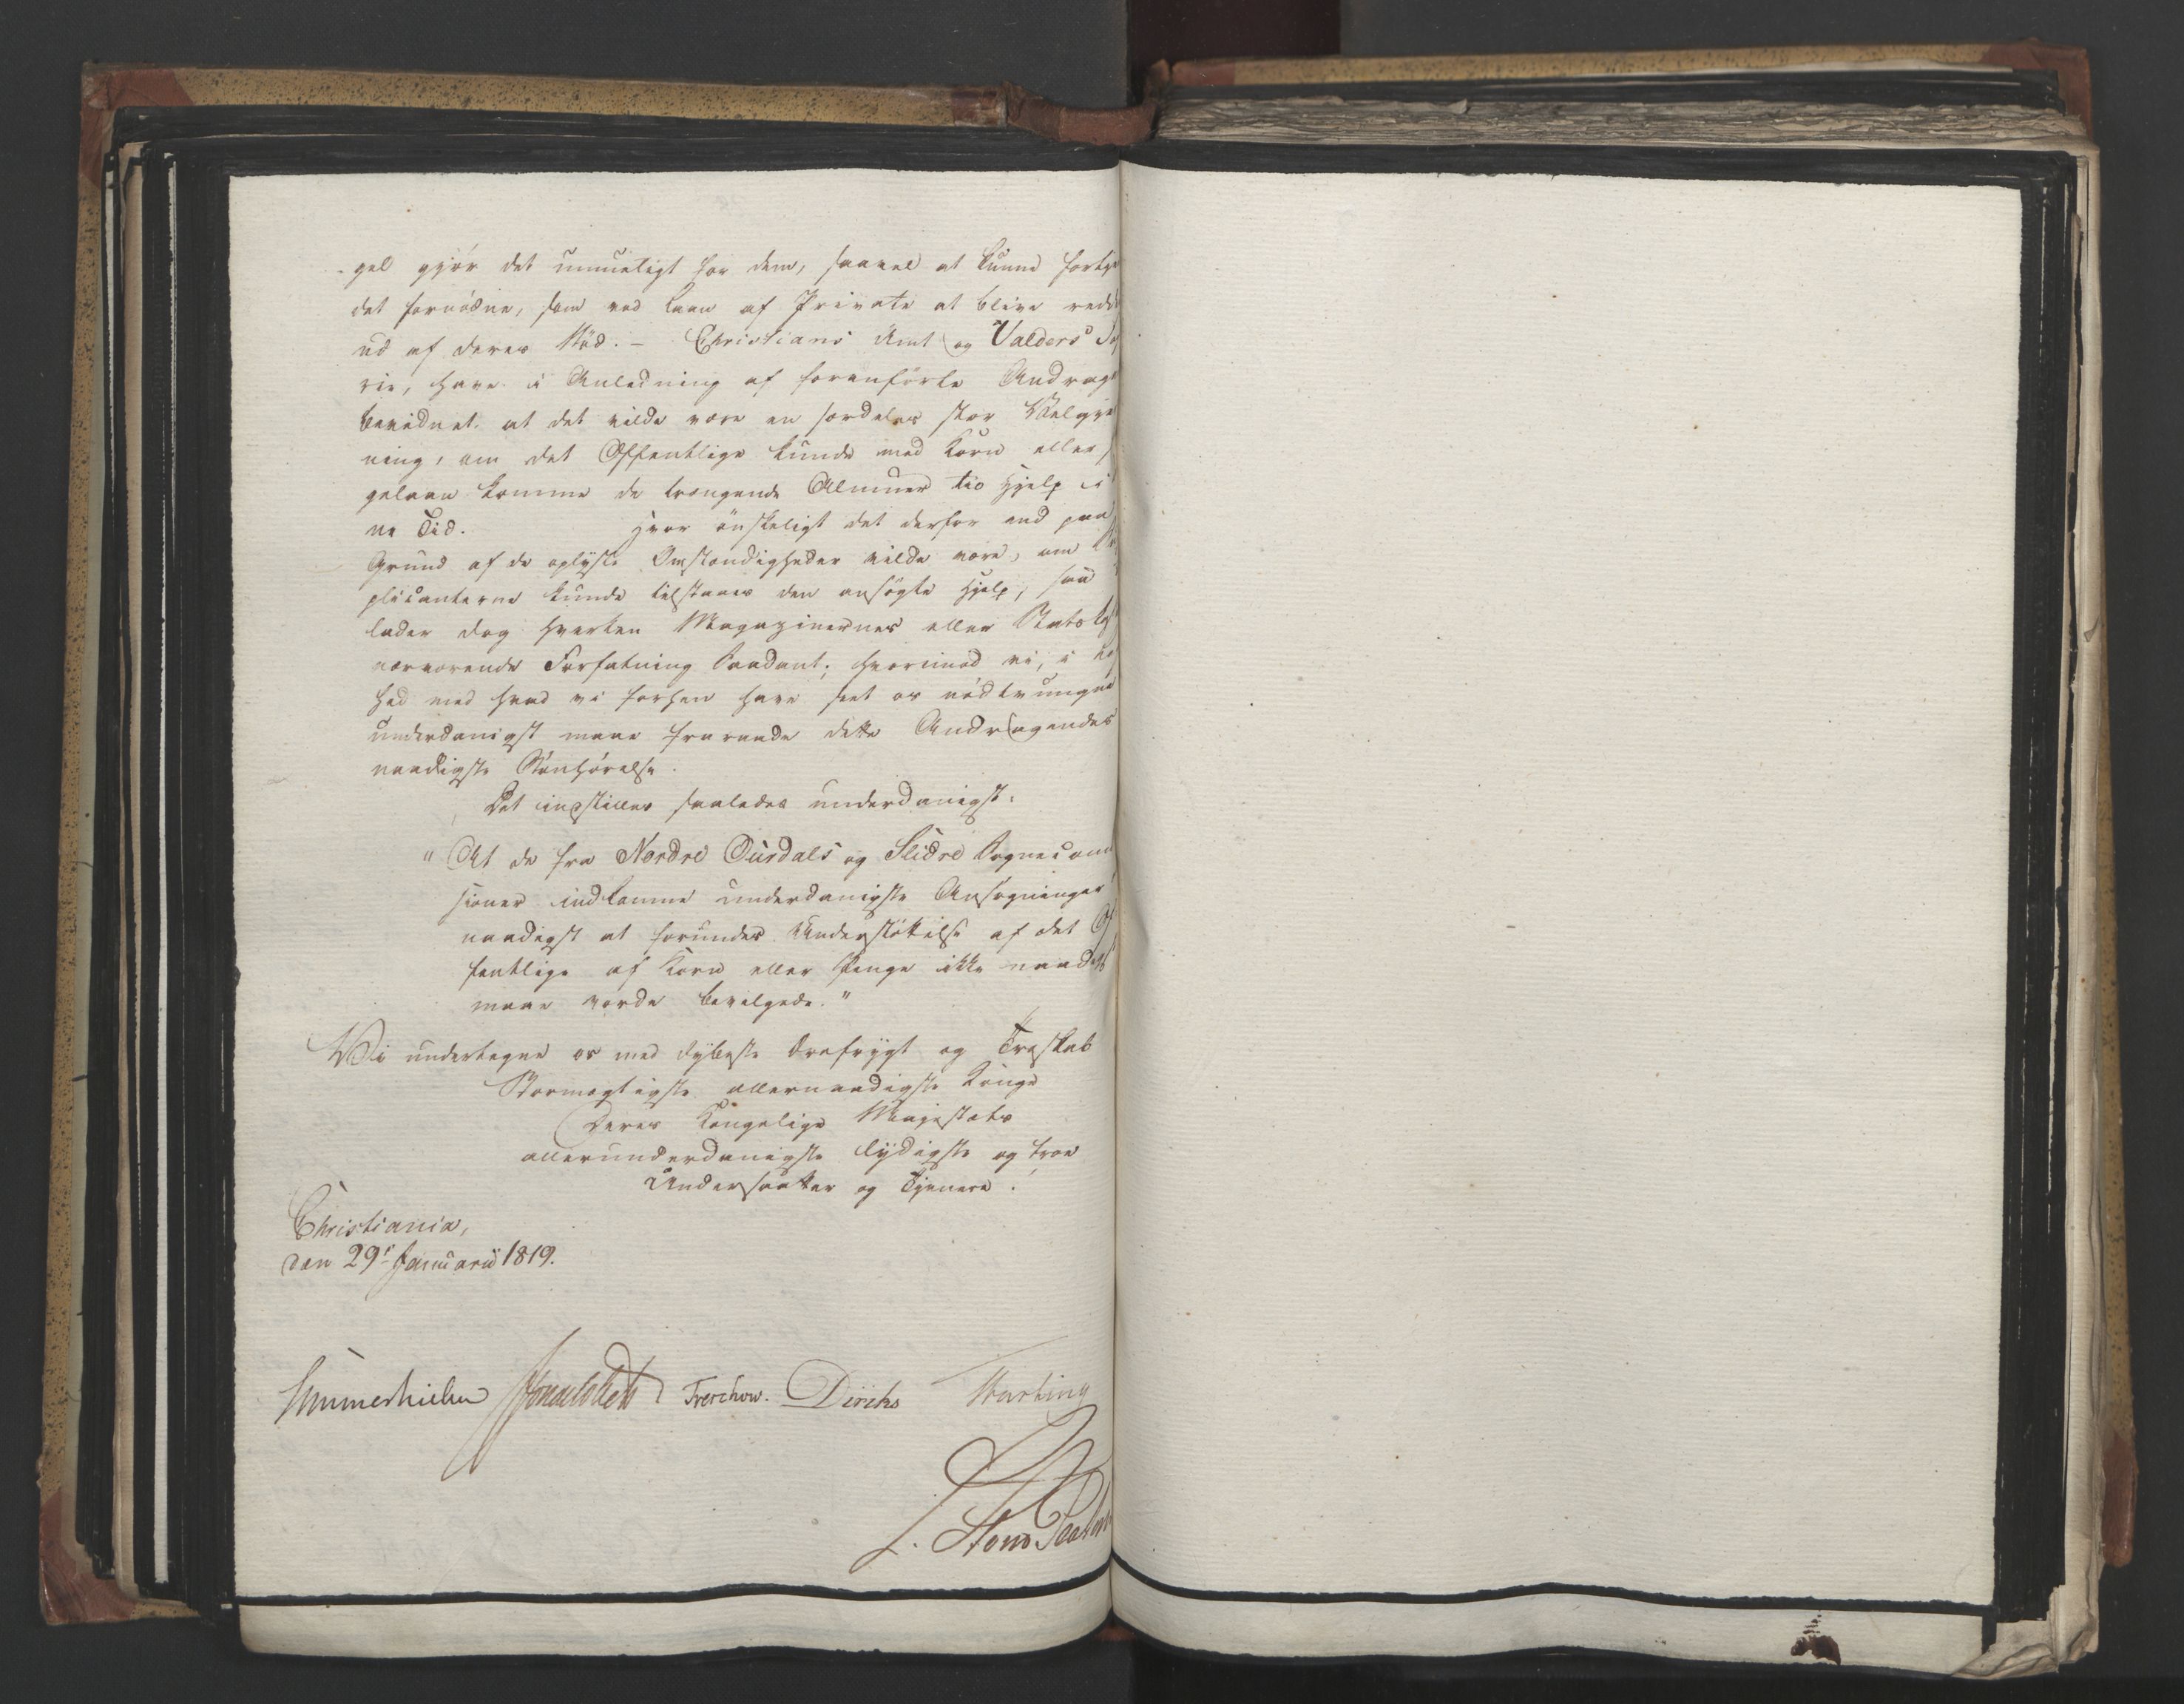 -gel gjør det umueligt for dem, saavel at kunne
det fornødne, som ved Laan af Private at blive
ud af deres Nød. – Christians Amt og Valders
rie, have i Anledning af foranførte
bevidnet, at det vilde være en særdeles stor
ning, om det Offentlige kunde med Korn eller
gelaan komme de trængende Almuer til Hjelp i
ne Tid. Hvor ønskeligt det derfor end paa
Grund af de oplyste Omstændigheder vilde være, om
plicanterne kunde tilstaaes den ansøgte Hjelp, saa
lader dog hverken Magazinernes eller
nærværende Forfatning saadant; hvorimod vi, i
hed med hvad vi forhen have seet os nødtvungne
underdanigst maae fraraade dette Andragendes
naadigste Bønhørelse.
Det indstilles saaledes underdanigst:
"At de fra Nordre Ourdals og Slidre
sioner indkomne underdanigste Ansøgninger
naadigst at forundes Understøttelse af det Of
fentlige af Korn eller Penge ikke naadigst
maae vorde bevilgede."
Vi undertegne os med dybeste Ærefrygt og Troskab
Stormægtigste allernaadigste Konge
Deres Kongelige Majestæts
allerunderdanigste lydigste og troe
Undersaatter og Tjenere.
Christiania,
den 29de Januarii 1819.
Sommerhielm Treschow. Diriks